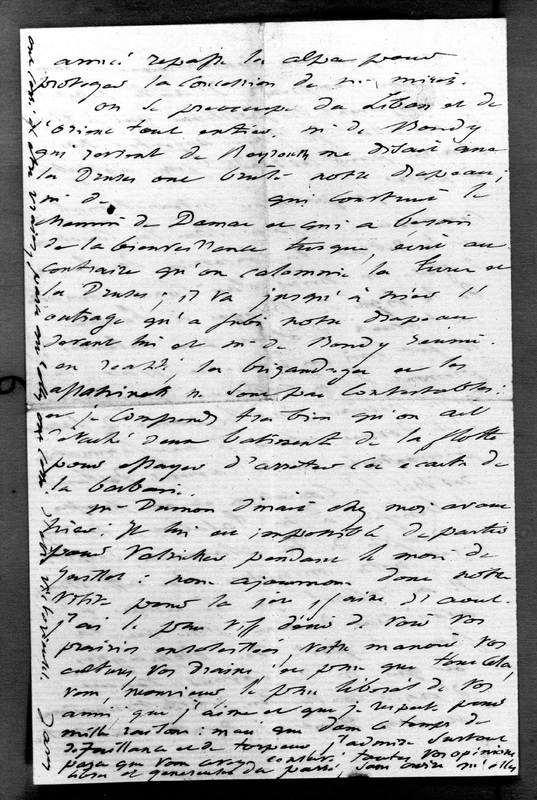 amici repasse les alpes pour
proteger la Concession de Mr. mirès.
on se preoccupe du Liban et de
l'orient tout entier. Mr de Bondy
qui revient de Beyrouth me disait que
les Druses ont brulé notre drapeau;
Mr de qui construit le
chemin de Damas et qui a besoin
de la bienveillance turque, écrit au
contraire qu'on calomnie les Turcs et
les Druses; il va jusqu'à nier l'
outrage qu'a subi notre drapeau
devant lui et Mr de Bondy réunis.
en realité, les brigandages et les
assassinats ne sont pas contestables:
et je comprends tres bien qu'on ait
détaché deux batiments de la flotte
pour essayer d'arreter les ecarts de
la barbarie.
Mr Dumon dinait chez moi avant
hier: Il lui est impossible de partir
pour Valricher pendant le mois de
Juillet: nous ajournons donc notre
visite pour la 1ere quinzaine d'aout.
j'ai le plus vif désir de voir vos
prairies ensoleillées, votre manoir, vos
cultures, vos drains et plus que tout cela,
vous, monsieur, le plus libéral de vos
amis que j'aime et que je respecte pour
mille raisons: mais que dans ce temps de
defaillance et de torpeur, j'admire surtout
parce que vous avez conservé toutes vos opinions
libres et genereuses du passé, sans